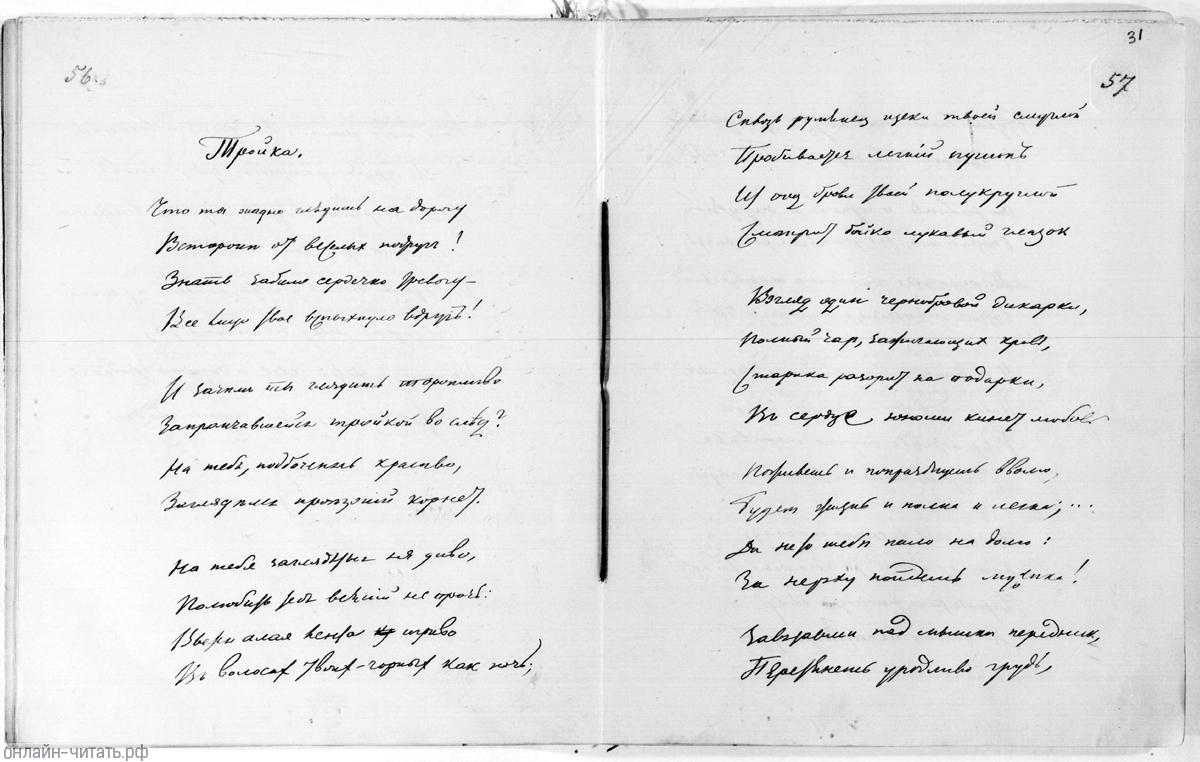 56
Тройка.
Что ты жадно глядишь на дорогу
В стороне от веселых подруг!
Знать забило сердечко тревогу —
Все лицо твое вспыхнуло вдругъ!
И зачем ты глядишь торопливо
За промчавшейся тройкой во следъ?
На тебя, подбоченясь красиво,
Загляделся проезжий корнет.
На тебя заглядеться не диво,
Полюбить тебя всякий не прочь:
Вьется алая лента игриво
Въ волосах твоих чорных как ночь;
31
57
Сквозь румянец щеки твоей смуглой
Пробивается легкий пушокъ
Из под брови твоей полукруглой
Смотрит бойко лукавый глазок
Взгляд один чернобровой дикарки,
Полный чар, зажигающих кровь,
Старика разорит на подарки,
Въ сердце юноши кинет любовь
Поживешь и попразднуешь вволю,
Будет жизнь и полна и легка;...
Да не то тебе пало на долю:
За неряху пойдешь мужика!
Завязавши под мышки передник,
Перетянешь уродливо грудь,
онлайн-читать.рф